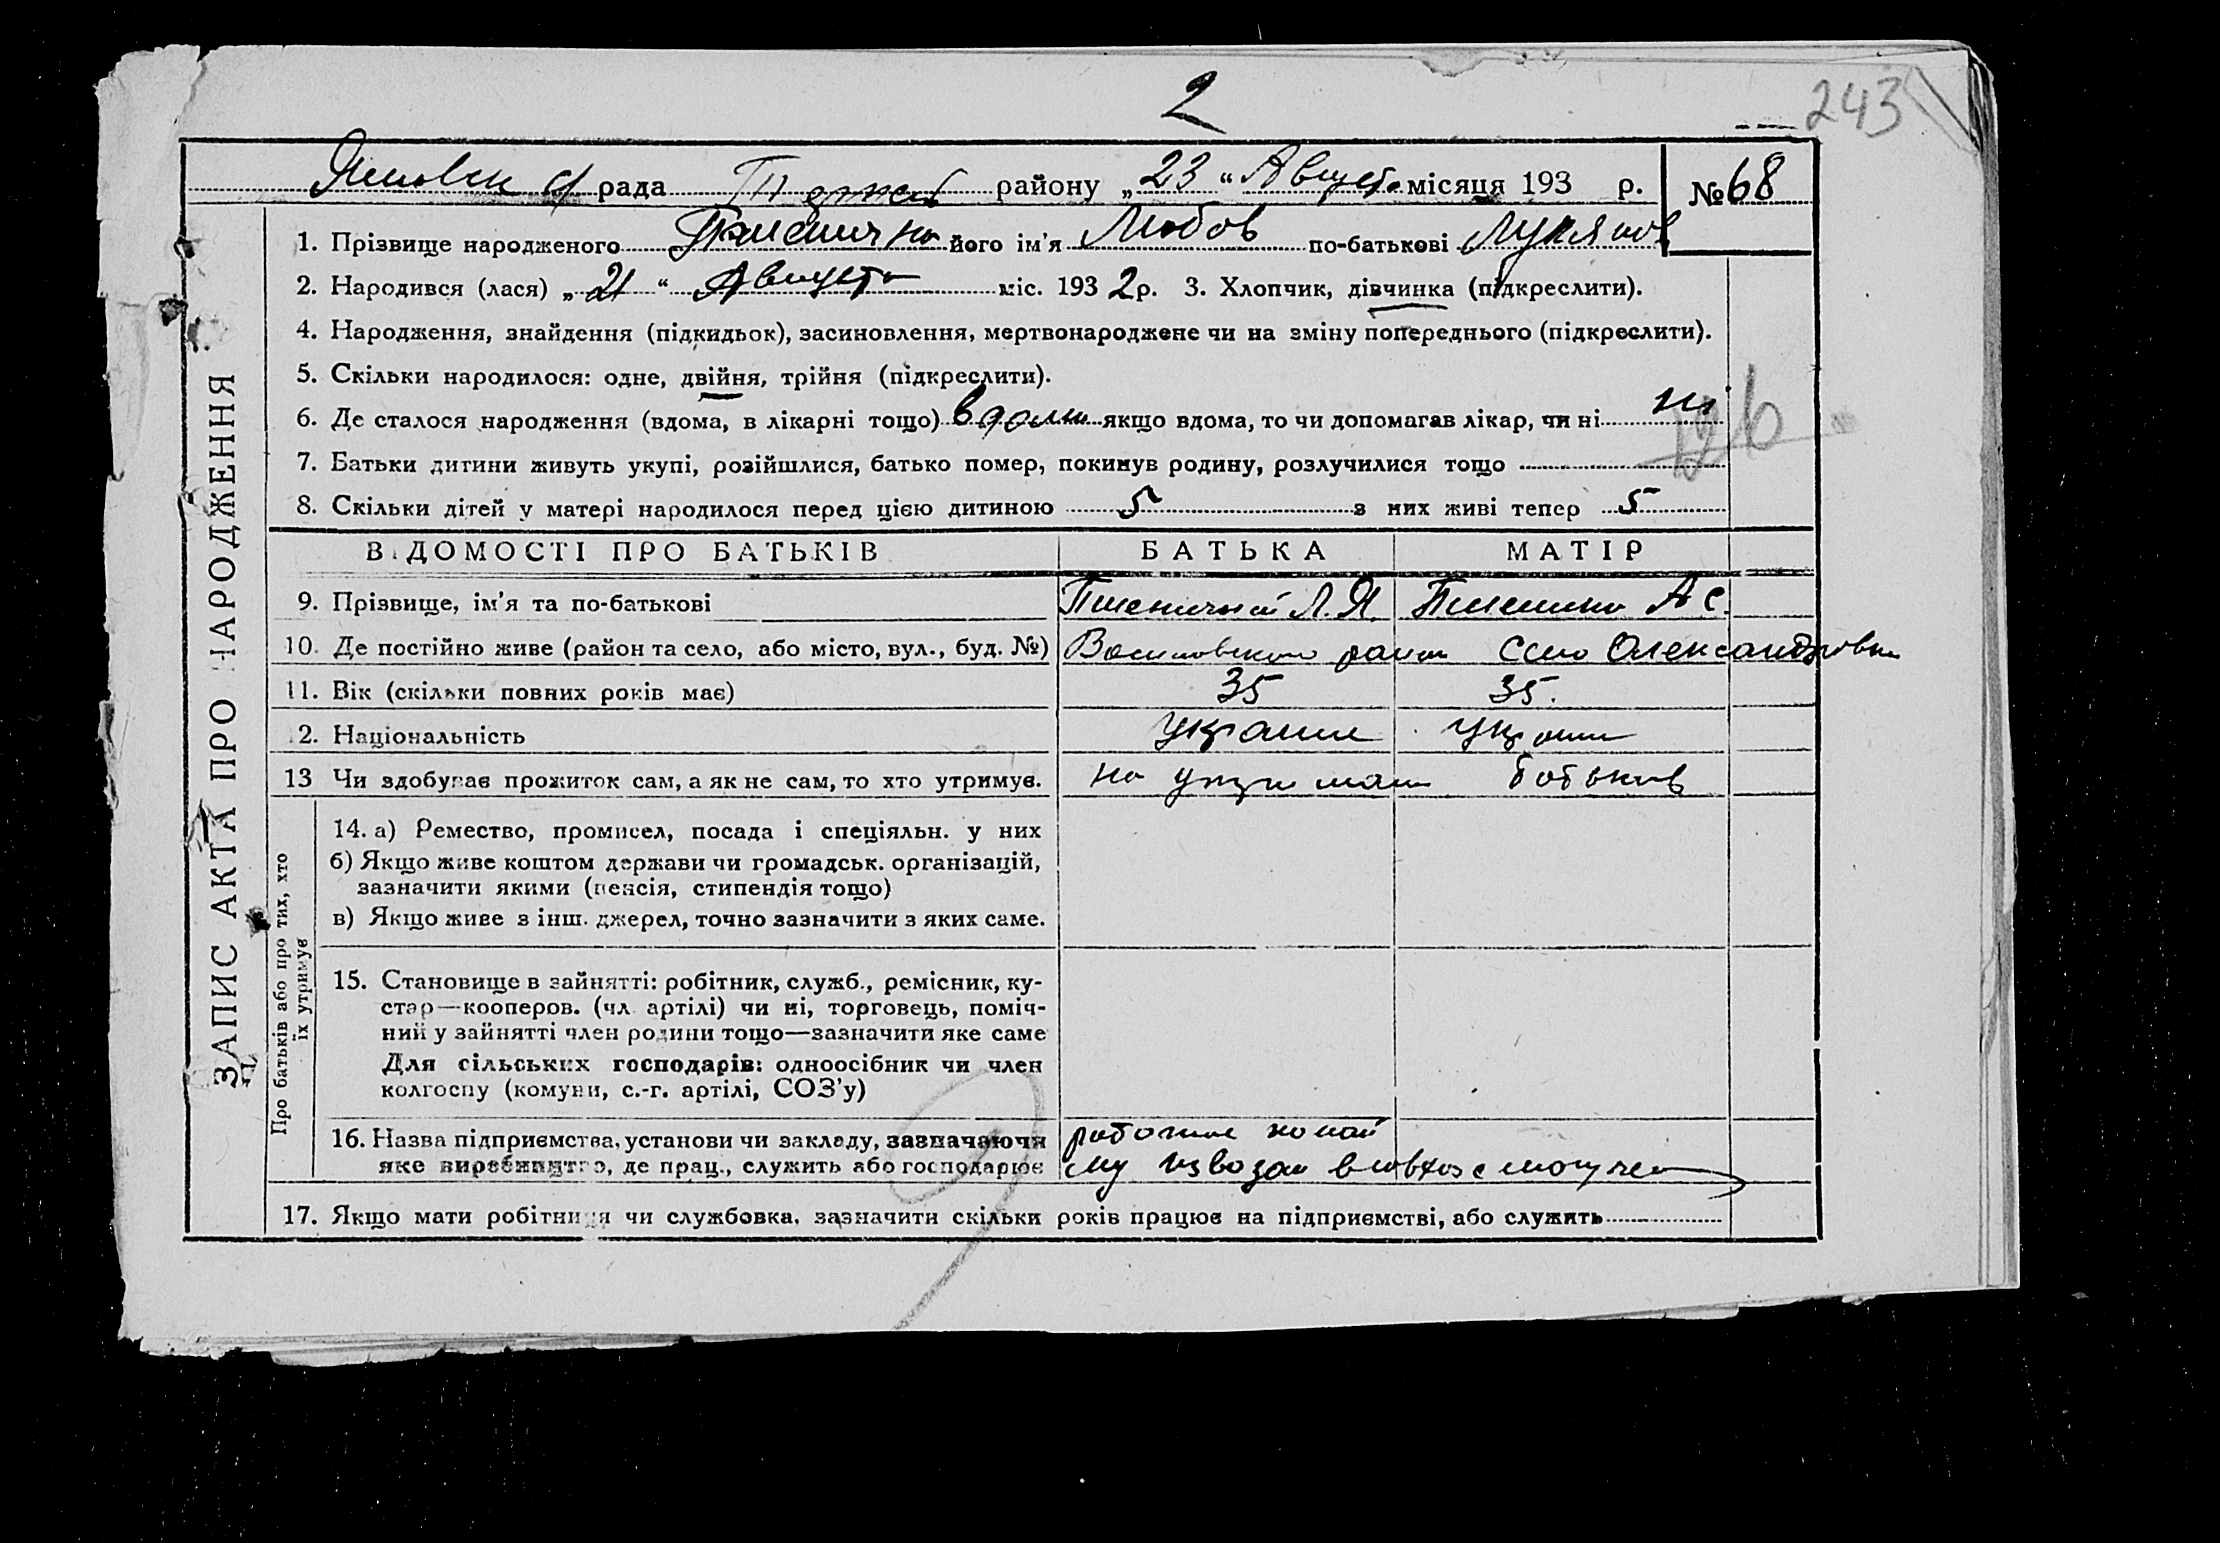 2
243
рада району „23“ Августа місяця 193 р. № 68
1. Прізвище народженого Пшенична його ім'я Любов по-батькові Лукянов
2. Народився (лася) „21“ Августа міс. 1932 р. 3. Хлопчик, дівчинка (підкреслити).
4. Народження, знайдення (підкидьок), засиновлення, мертвонароджене чи на зміну попереднього (підкреслити).
5. Скільки народилося: одне, двійня, трійня (підкреслити).
6. Де сталося народження (вдома, в лікарні тощо) вдома якщо вдома, то чи допомагав лікар, чи ні ні
7. Батьки дитини живуть укупі, розійшлися, батько помер, покинув родину, розлучилися тощо
8. Скільки дітей у матері народилося перед цією дитиною 5 з них живі тепер 5
ЗАПИС АКТА ПРО НАРОДЖЕННЯ
ВІДОМОСТІ ПРО БАТЬКІВ БАТЬКА МАТІР
9. Прізвище, ім'я та по-батькові Пшеничний Л. Я. А С.
10. Де постійно живе (район та село, або місто, вул., буд. №) район Село Олександровка
11. Вік (скільки повних років має) 35 35.
12. Національність
13 Чи здобував прожиток сам, а як не сам, то хто утримує. на батьков
Про батьків або про тих, хто
їх утримує
14. а) Ремество, промисел, посада і спеціяльн. у них
б) Якщо живе коштом держави чи громадськ. організацій,
зазначити якими (пенсія, стипендія тощо)
в) Якщо живе з інш. джерел, точно зазначити з яких саме.
15. Становище в зайнятті: робітник, служб., ремісник, ку-
стар—кооперов. (чл. артілі) чи ні, торговець, поміч-
ний у зайнятті член родини тощо—зазначити яке саме
Для сільських господарів: одноосібник чи член
колгоспу (комуни, с.-г. артілі, СОЗ'у)
16. Назва підприємства, установи чи закладу, зазначаючи
яке виробництво, де прац., служить або господарює
17. Якщо мати робітниця чи службовка, зазначити скільки років працює на підприємстві, або служить